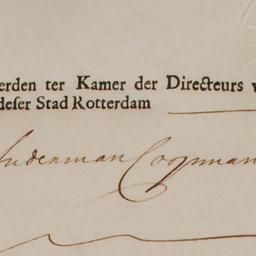 erden ter Kamer der Directeurs v
deser Stad Rotterdam
uderman Coopman